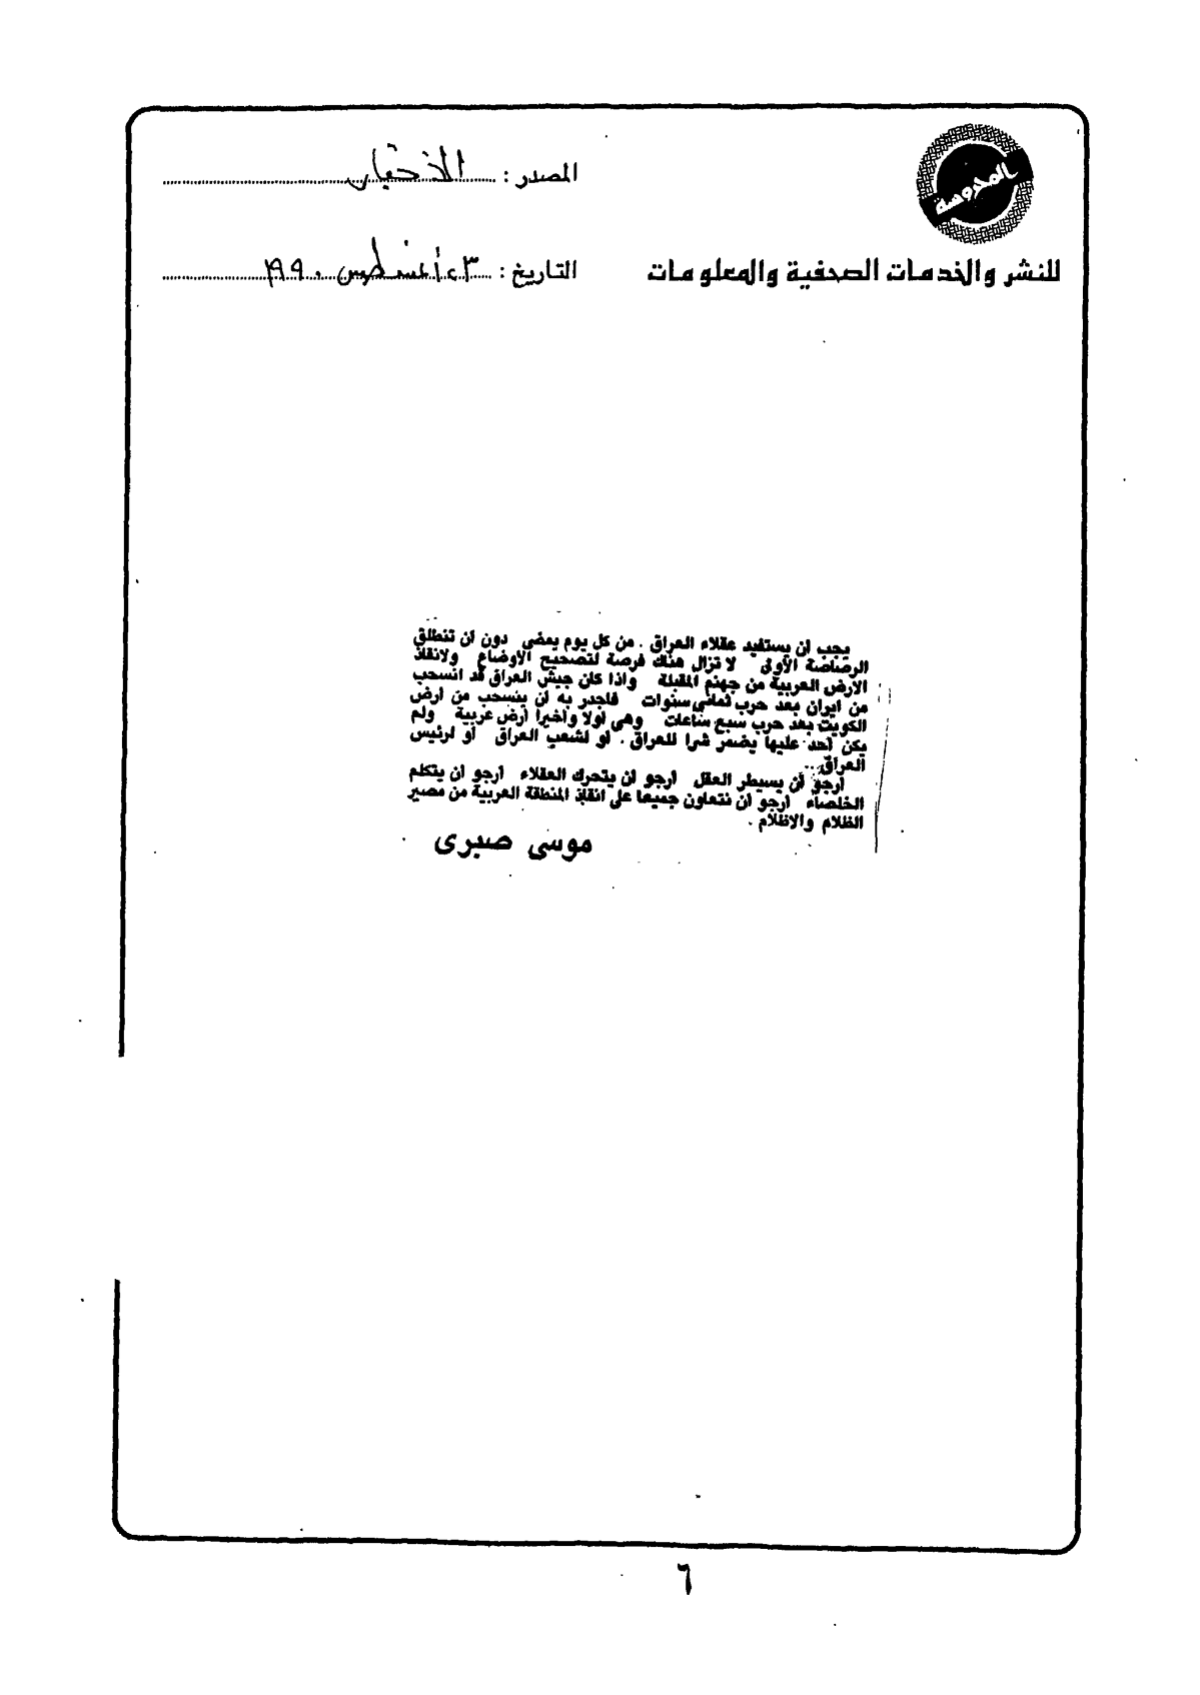 المحروسة
المصدر : الأخبار
للنشر والخدمات الصحفية والمعلومات
التاريخ : ٣٠ أغسطس ١٩٩٠
يجب ان يستفيد عقلاء العراق . من كل يوم يمضى دون ان تنطلق
الرصاصة الأولى لا تزال هناك فرصة لتصحيح الأوضاع ولانقاذ
الأرض العربية من جهنم المقبلة واذا كان جيش العراق قد انسحب
من ايران بعد حرب ثمانى سنوات فاجدر به ان ينسحب من ارض
الكويت بعد حرب سبع ساعات وهى اولا واخيرا أرض عربية ولم
يكن أحد عليها يضمر شرا للعراق . او لشعب العراق او لرئيس
العراق ..
أرجو أن يسيطر العقل أرجو ان يتحرك العقلاء أرجو ان يتكلم
الخلصاء أرجو ان نتعاون جميعا على انقاذ المنطقة العربية من مصير
الظلام والاظلام .
موسى صبرى
٦